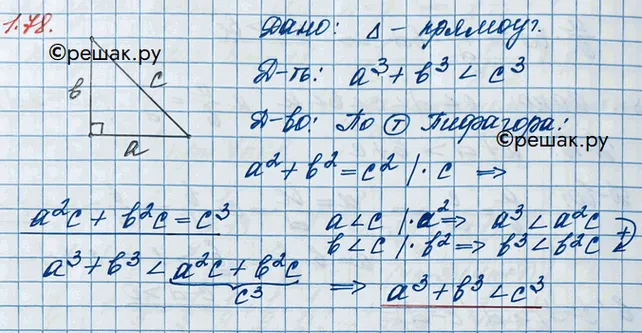 1.78.
©решак.ру
в
c
a
Дано: Δ – прямоуг.
Д-ть: a³ + в³ < c³
Д-во: По Ⓣ Пифагора:
©решак.ру
a² + в² = c² | · c ⇒
a²c + в²c = c³
a < c | · a² ⇒ a³ < a²c
в < c | · в² ⇒ в³ < в²c
a³ + в³ < a²c + в²c
c³
⇒ a³ + в³ < c³